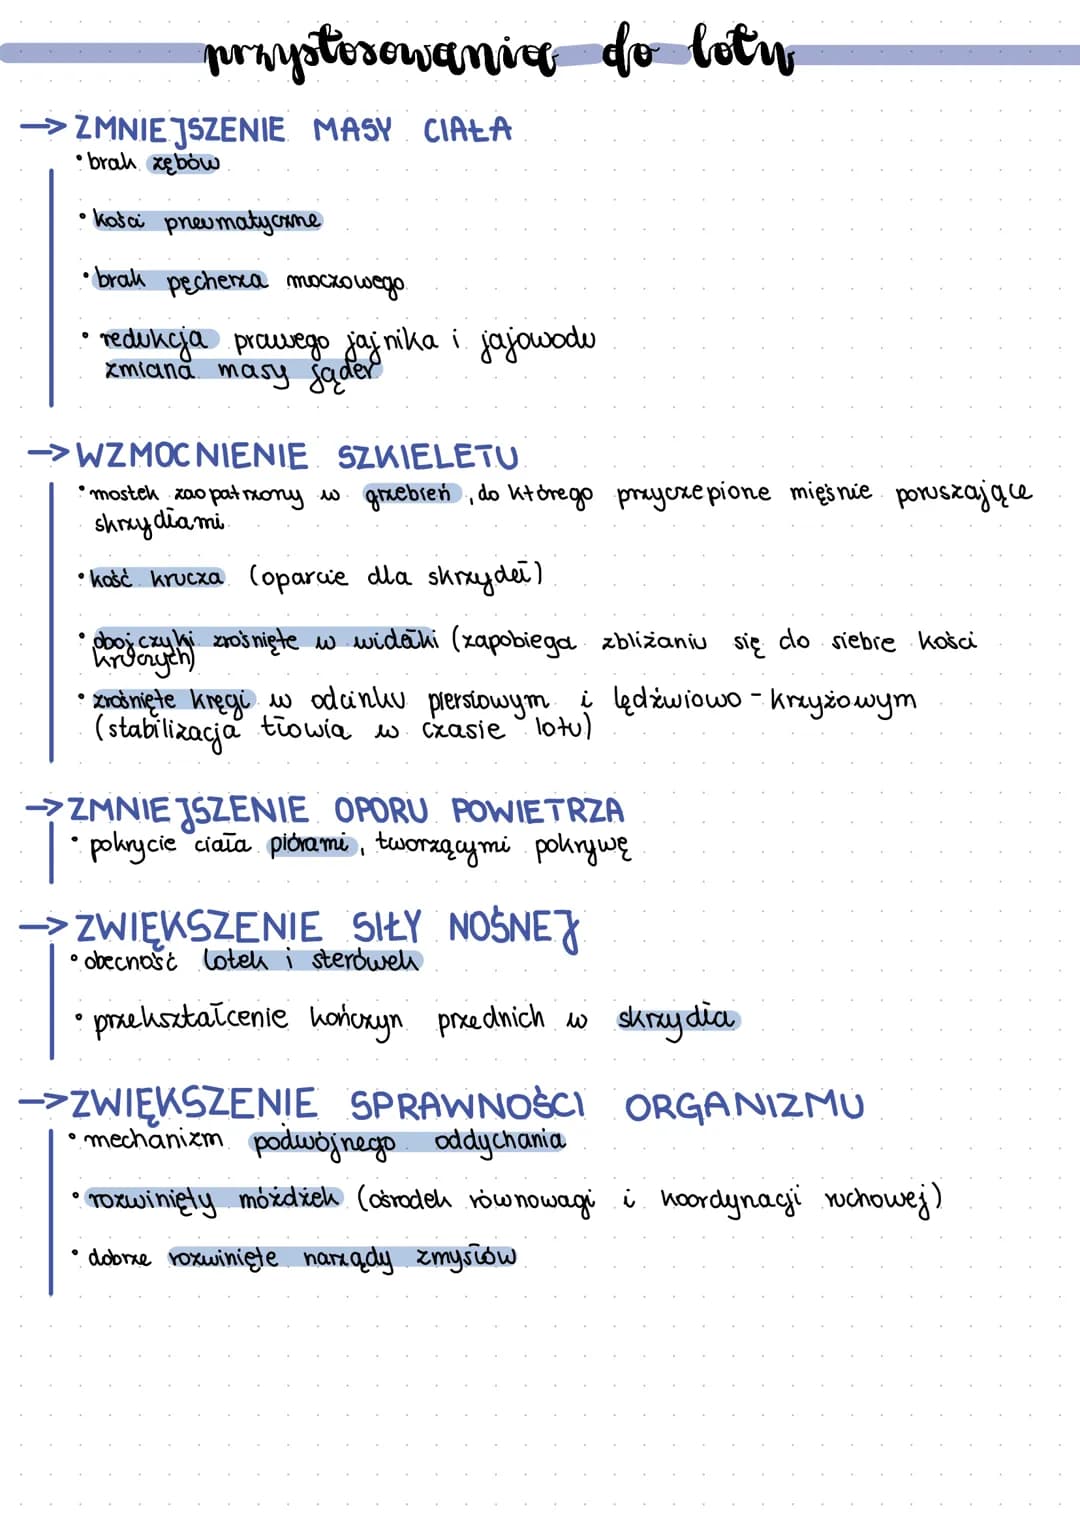 przystosowania do lotu
→ ZMNIEJSZENIE MASY CIAŁA
• brak zębów
• kości pneumatyczne
• brak pęcherza moczowego
• redukcja prawego jajnika i jajowodu
zmiana masy jąder
→ WZMOCNIENIE SZKIELETU
• mostek zaopatrzony w grzebień, do którego przyczepione mięśnie poruszające
skrzydłami
• kość krucza (oparcie dla skrzydeł)
• obojczyki zrośnięte w widełki (zapobiega zbliżaniu się do siebie kości
kruczych)
• zrośnięte kręgi w odcinku piersiowym i lędźwiowo - krzyżowym
(stabilizacja tłowia w czasie lotu)
→ ZMNIEJSZENIE OPORU POWIETRZA
• pokrycie ciała piórami, tworzącymi pokrywę
→ ZWIĘKSZENIE SIŁY NOŚNEJ
• obecność lotek i sterówek
• przekształcenie kończyn przednich w skrzydła
→ ZWIĘKSZENIE SPRAWNOŚCI ORGANIZMU
• mechanizm podwójnego oddychania
• rozwinięty móżdżek (ośrodek równowagi i koordynacji ruchowej)
• dobrze rozwinięte narządy zmysłów